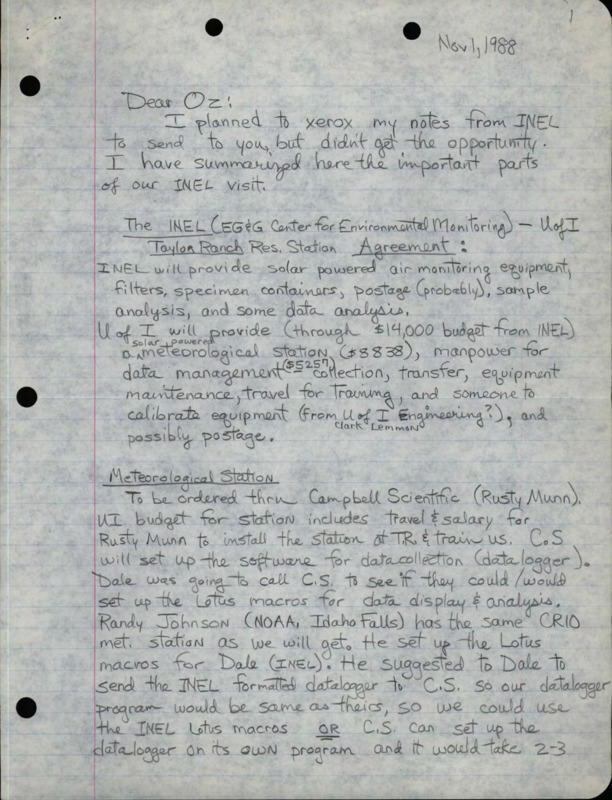 1
Nov 1, 1988
Dear Oz:
I planned to xerox my notes from INEL
to send to you, but didn't get the opportunity.
I have summarized here the important parts
of our INEL visit.
The INEL (EG&G Center for Environmental Monitoring) – U of I
Taylor Ranch Res. Station Agreement:
INEL will provide solar powered air monitoring equipment,
filters, specimen containers, postage (probably), sample
analysis, and some data analysis.
U of I will provide (through $14,000 budget from INEL)
solar powered
a meteorological station ($8838), manpower for
data management ($5257) collection, transfer, equipment
maintenance, travel for Training, and someone to
calibrate equipment (from U of I Engineering?), and
Clark Lemmon
possibly postage.
Meteorological Station
To be ordered thru Campbell Scientific (Rusty Munn).
UI budget for station includes travel & salary for
Rusty Munn to install the station at TR. & train us. C.S
will set up the software for data collection (datalogger).
Dale was going to call C.S. to see if they could/would
set up the Lotus macros for data display & analysis.
Randy Johnson (NOAA, Idaho Falls) has the same CR10
met. station as we will get. He set up the Lotus
macros for Dale (INEL). He suggested to Dale to
send the INEL formatted datalogger to C.S. so our datalogger
program would be same as theirs, so we could use
the INEL Lotus macros OR C.S. can set up the
datalogger on its own program and it would take 2-3